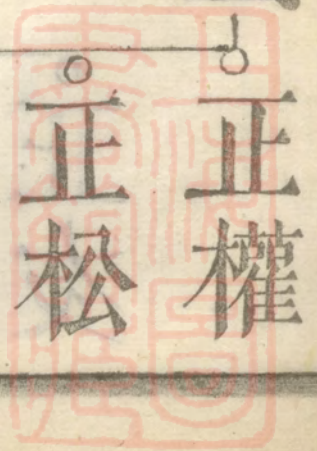 正權
正松